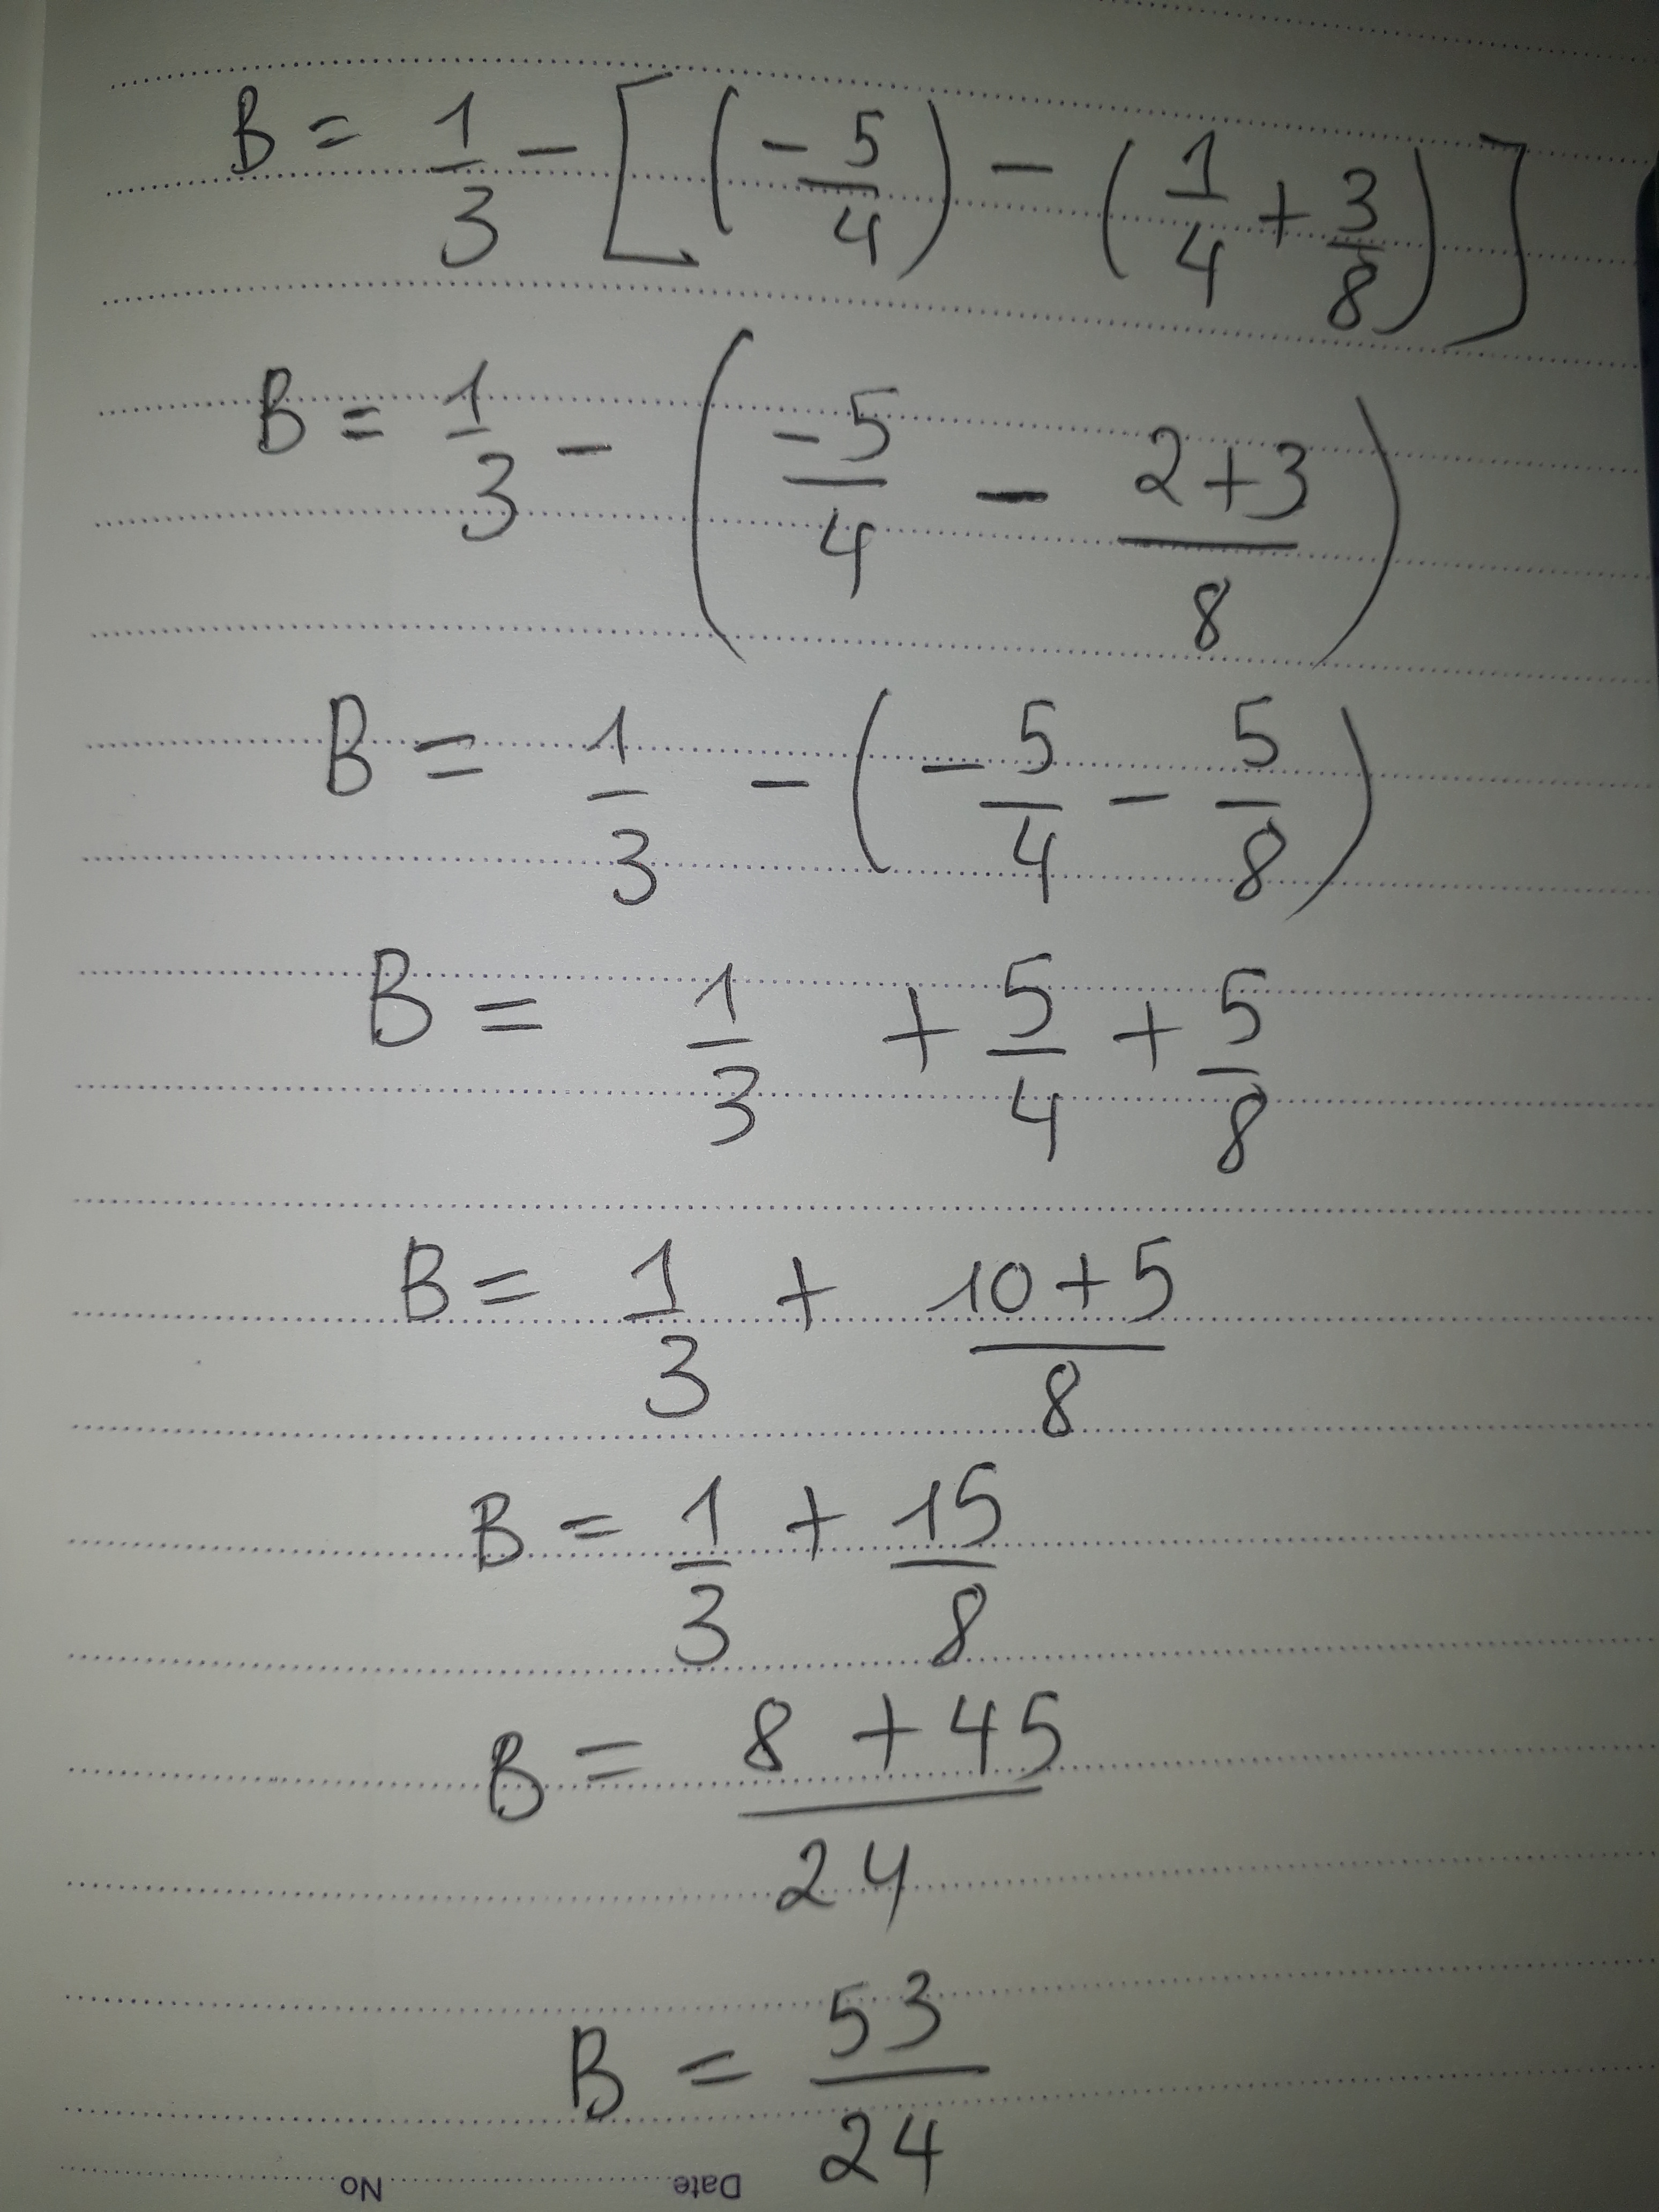 B = 1/3 - [(-5/4) - (1/4 + 3/8)]
B = 1/3 - (-5/4 - (2+3)/8)
B = 1/3 - (-5/4 - 5/8)
B = 1/3 + 5/4 + 5/8
B = 1/3 + (10+5)/8
B = 1/3 + 15/8
B = (8+45)/24
B = 53/24
No Date